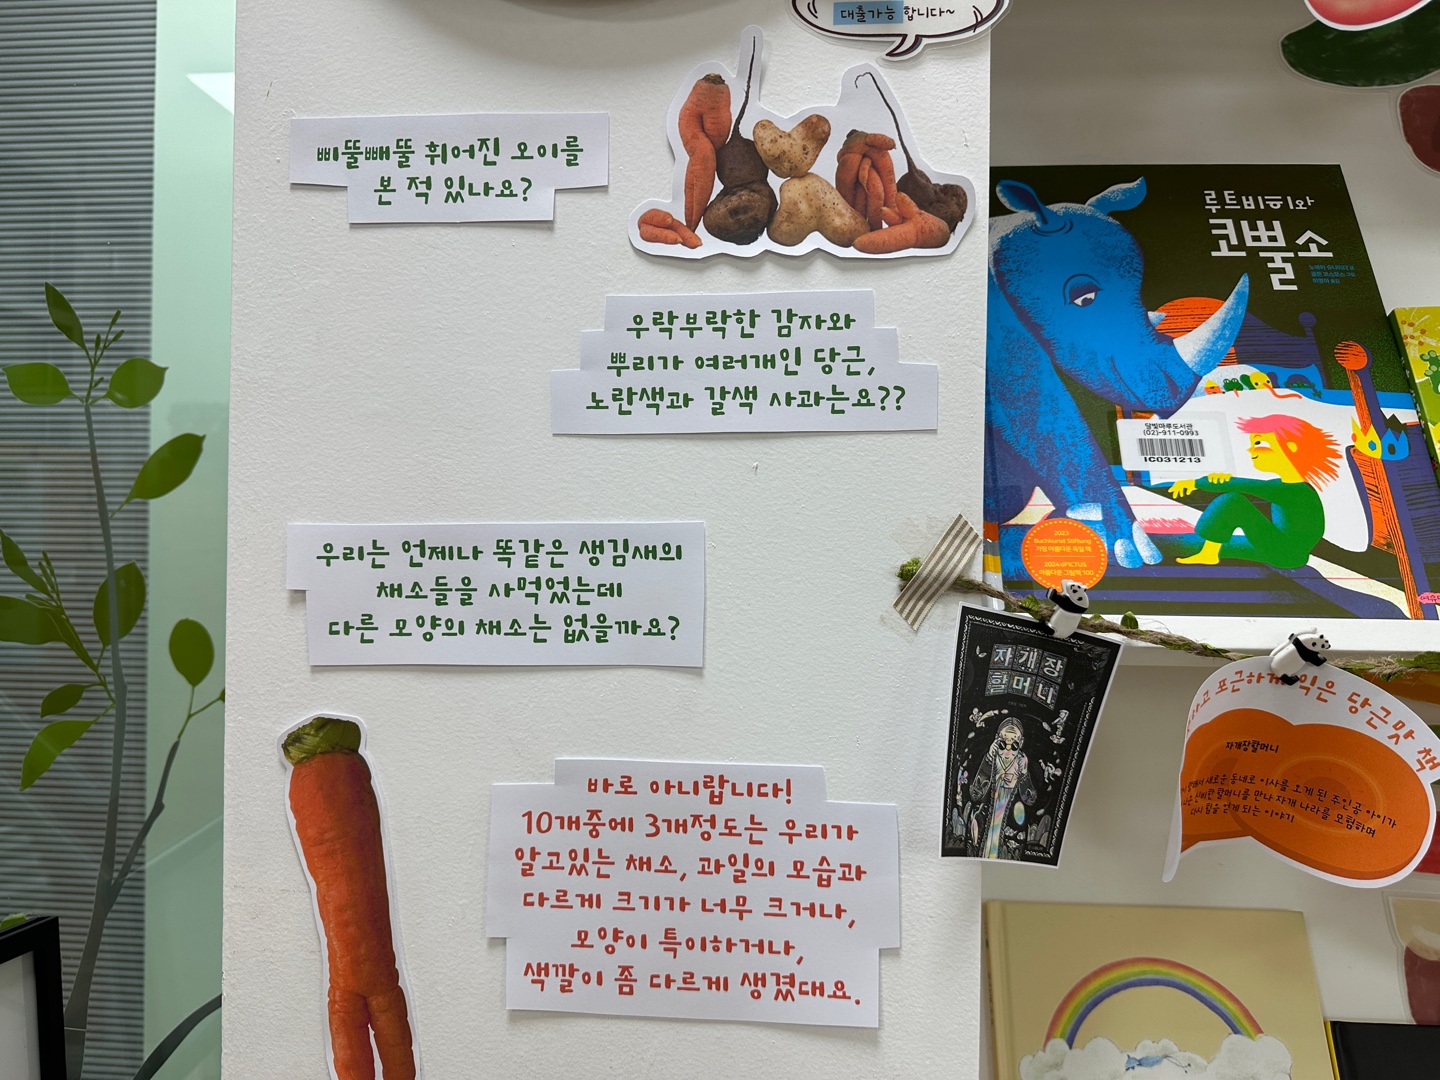 대출가능 합니다~
삐뚤빼뚤 휘어진 오이를
본 적 있나요?
우락부락한 감자와
뿌리가 여러개인 당근,
노란색과 갈색 사과는요??
우리는 언제나 똑같은 생김새의
채소들을 사먹었는데
다른 모양의 채소는 없을까요?
바로 아니랍니다!
10개중에 3개정도는 우리가
알고있는 채소, 과일의 모습과
다르게 크기가 너무 크거나,
모양이 특이하거나,
색깔이 좀 다르게 생겼대요.
루트비히와
코뿔소
달빛마루도서관
(02)-911-0993
IC031213
2023
Buchkunst Stiftung
가장 아름다운 독일 책
2024 dPICTUS
아름다운 그림책 100
자개장
할머니
포근하게 익은 당근맛 책
자개장할머니
새로운 동네로 이사를 오게 된 주인공 아이가
할머니를 만나 자개 나라를 모험하며
힘을 얻게 되는 이야기